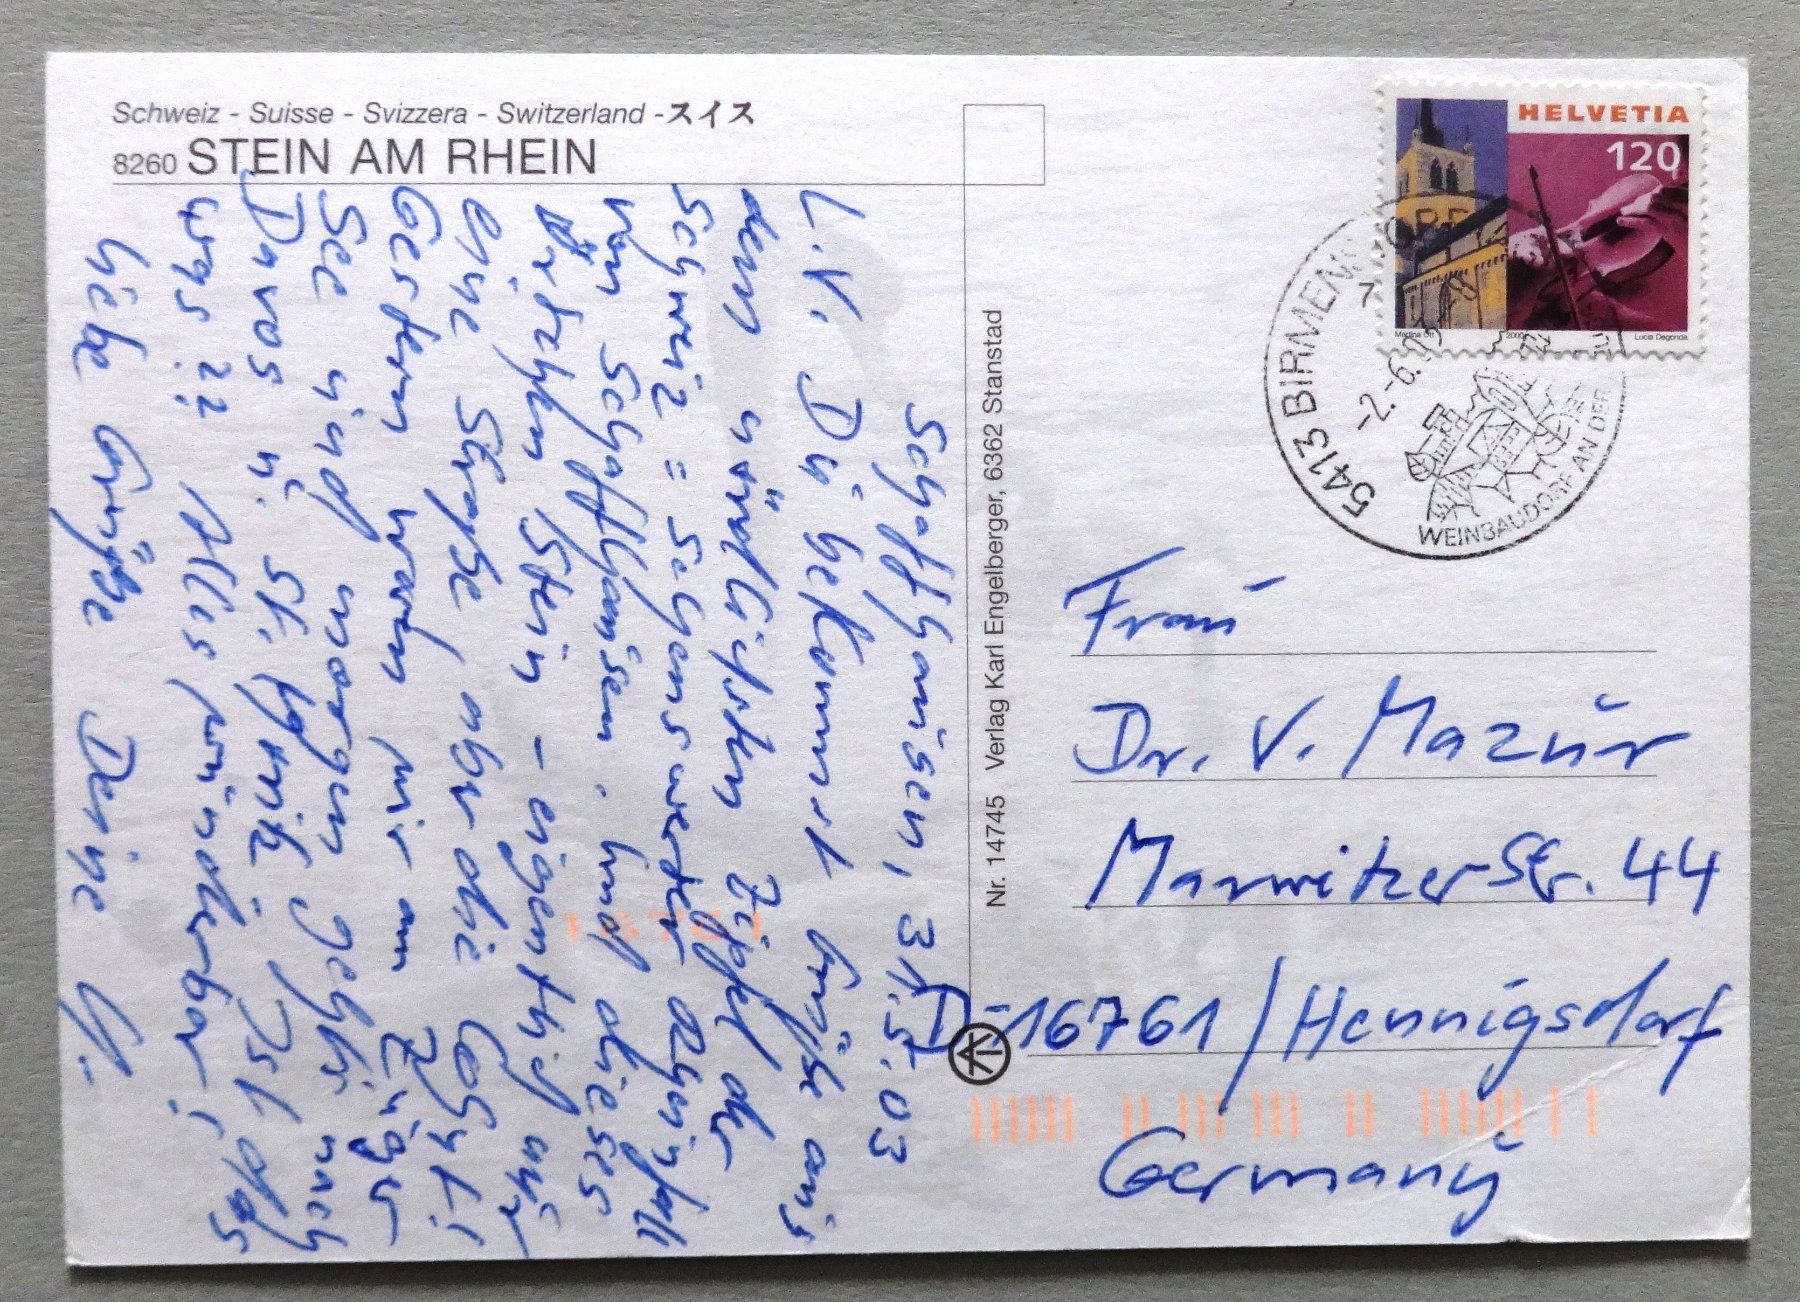 Schweiz - Suisse - Svizzera - Switzerland -スイス
8260 STEIN AM RHEIN
Schaffhausen, 31.5.03
L. V. Du bekommst Grüße aus
dem nördlichsten Zipfel der
Schweiz = sehenswerter Rheinfall
von Schaffhausen. Und dieses
Örtchen Stein – eigentlich nur
eine Straße aber die lohnt!
Gestern waren wir am Züger
See und morgen geht's nach
Davos u. St. Moritz. Ist das
was?? Alles wunderbar!
Liebe Grüße Deine U.
Nr. 14745 Verlag Karl Engelberger, 6362 Stanstad
HELVETIA
120
2000
Lucia Degonda
5413 BIRMENSDORF
-2.-6.03
WEINBAUDORF AN DER
Frau
Dr. V. Mazur
Marwitzer Str. 44
D-16761 / Hennigsdorf
Germany